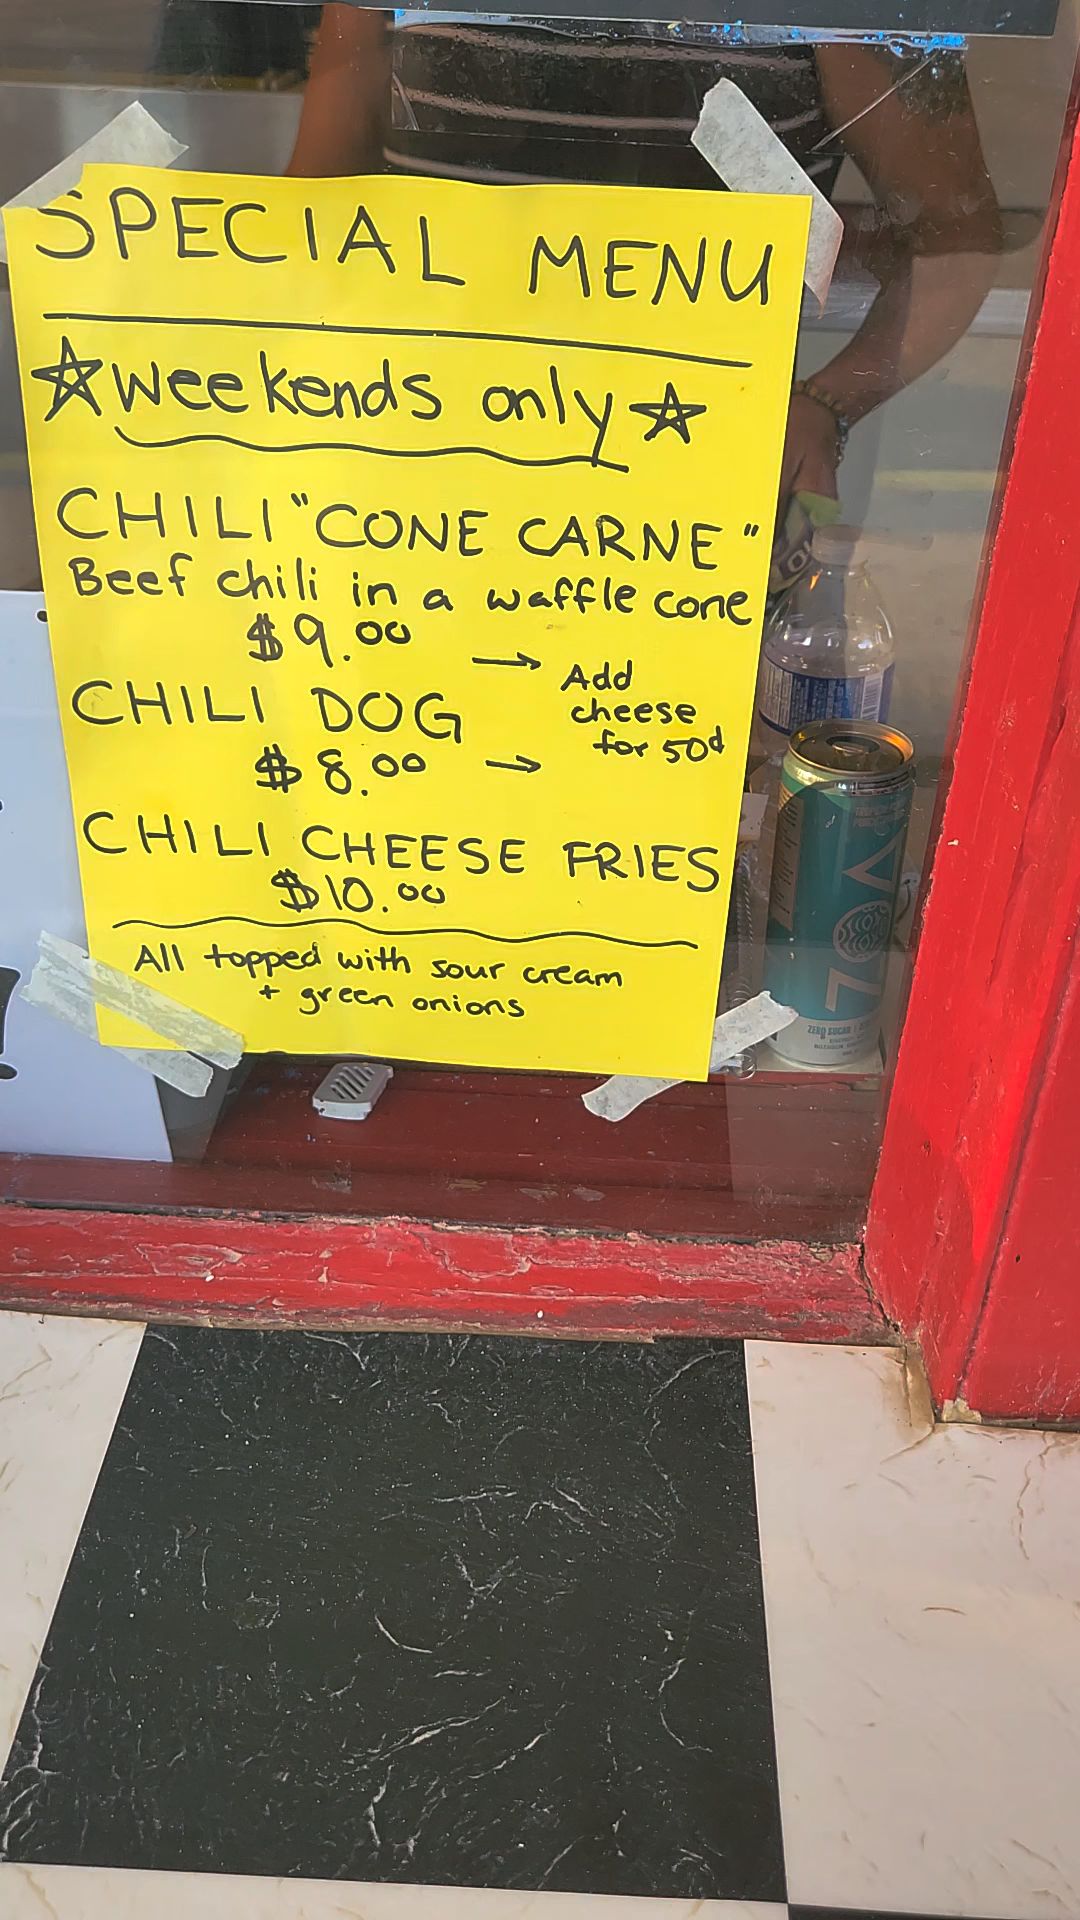 SPECIAL MENU
☆ weekends only ☆
CHILI "CONE CARNE"
Beef chili in a waffle cone
$9.00 →
Add
cheese
for 50¢
CHILI DOG
$8.00 →
CHILI CHEESE FRIES
$10.00
All topped with sour cream
+ green onions
ZERO SUGAR